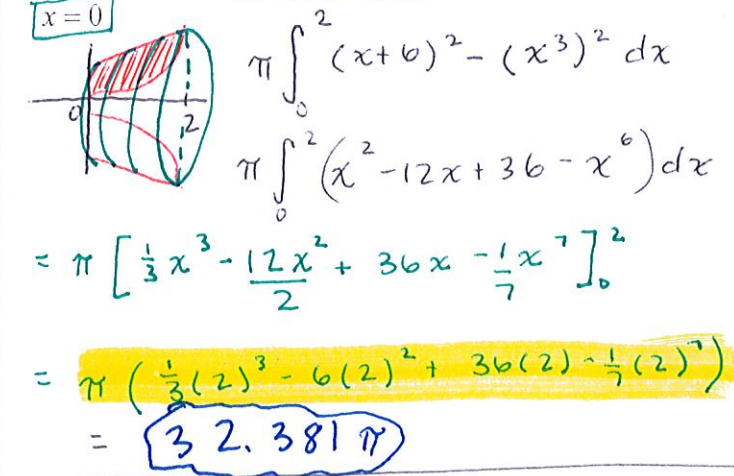 x = 0
π ∫₀² (x+6)² - (x³)² dx
0 2
π ∫₀² (x² -12x + 36 - x⁶) dx
= π [ 1/3 x³ - 12x²/2 + 36x - 1/7 x⁷ ]₀²
= π ( 1/3 (2)³ - 6(2)² + 36(2) - 1/7 (2)⁷ )
= 32.381π